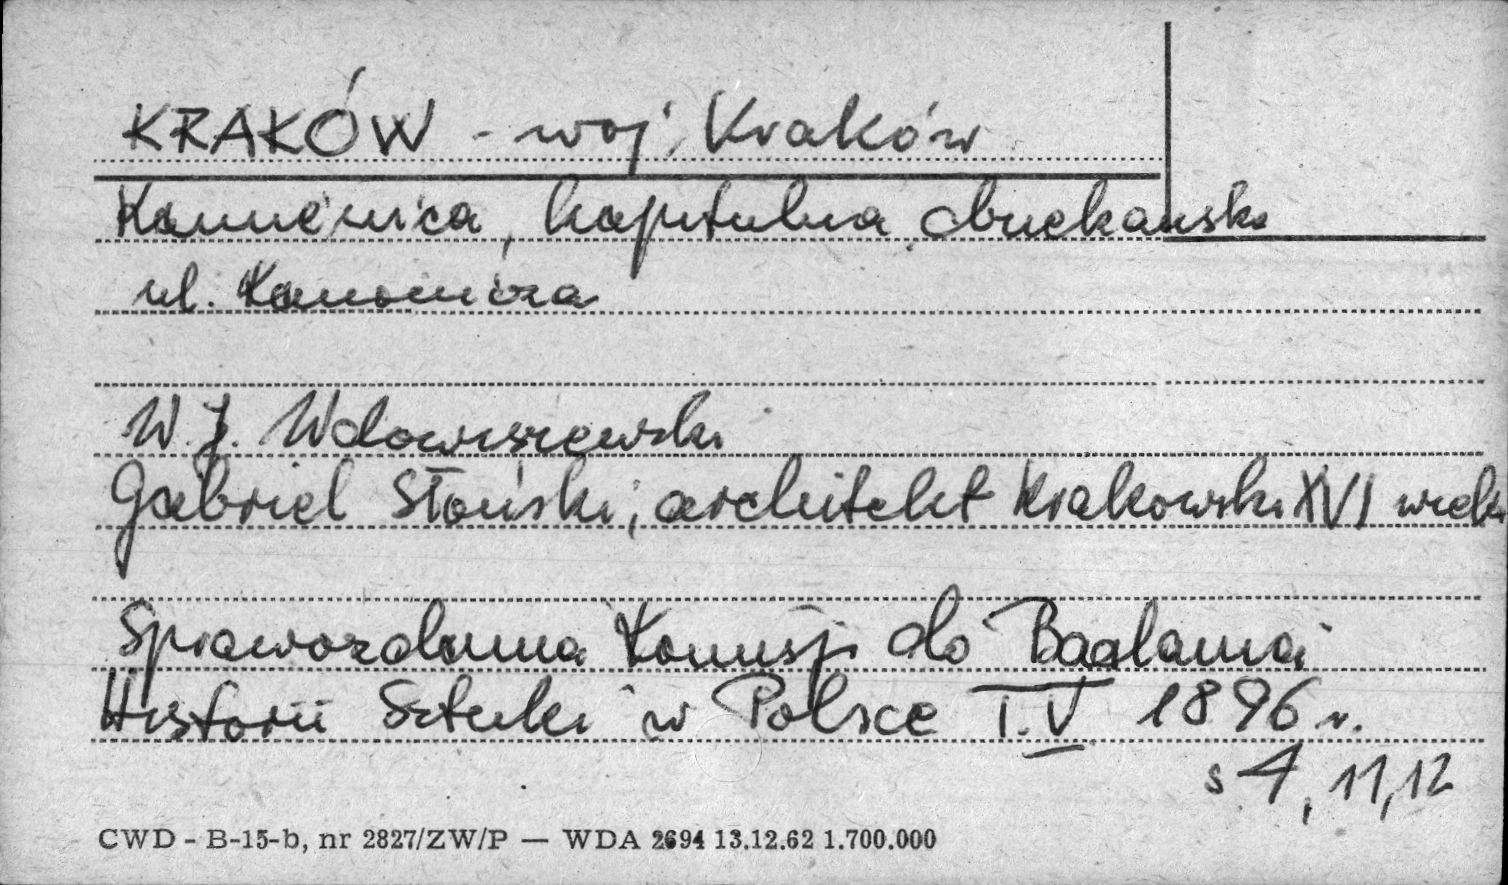 KRAKÓW - woj. Kraków
Kamienica, kapitulna
ul. Kanonicza
W. J. Wdowiszewski
Gabriel Słoński, architekt krakowski XVI wieku
Sprawozdania Komisji do Badania
Historii Sztuki w Polsce T. V 1896 r.
s 4, 11, 12
CWD - B-15-b, nr 2827/ZW/P — WDA 2694 13.12.62 1.700.000